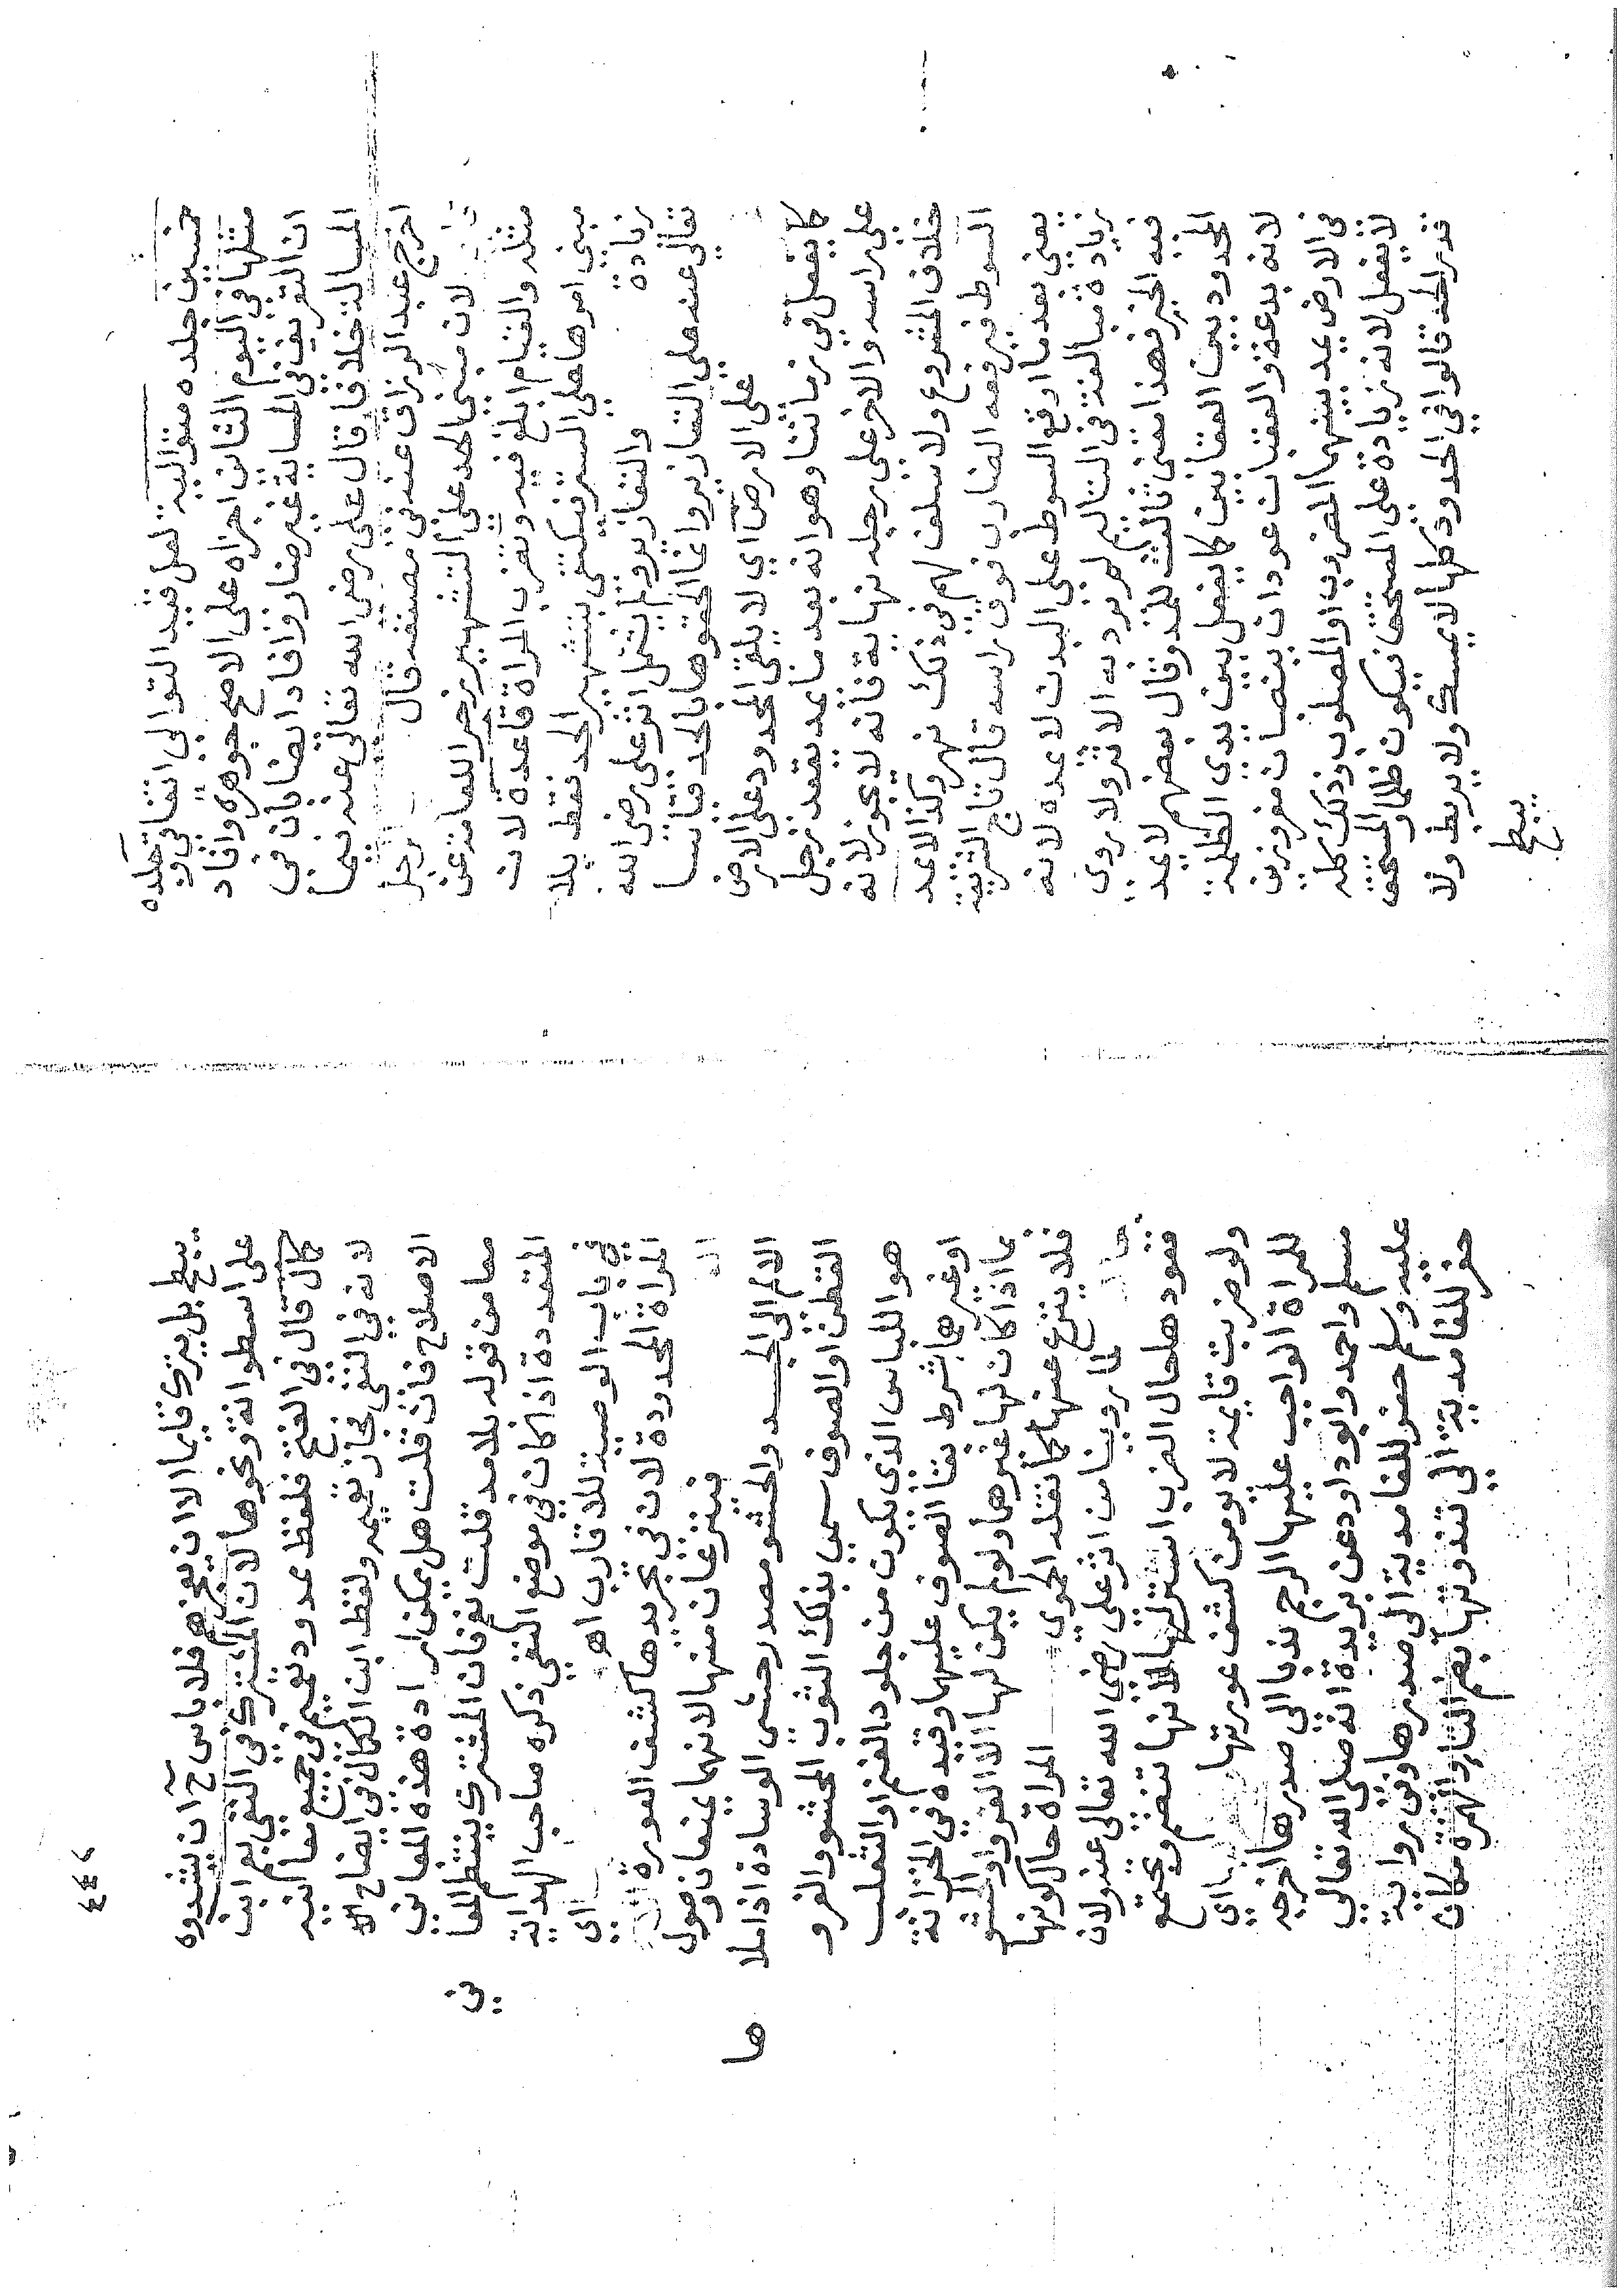 خمسين جلده متوالية لعل قيد التوالى اتفاقي جلده
مثلها في اليوم الثاني اجزاه على الاصح جوهره وافاد
ان التفريق في المساية غير ضار وافاد ايضا بان في
المسالة خلافا قال على رضى الله تعالى عنه فيما
اخرج عبد الرزاق عنه في مصنفه قال رجل
لان مبنى الحد على التشهير زجرا للعامة عن
مثله والقيام ابلغ فيه وتضرب المراة قاعدة لان
مبنى امرها على الستر فيكتفى بتشهير الحد فقط بلا
زيادة والتعازير ولم يشمل اثر على رضى الله
تعالى عنه على التعازير وانما الحقوها بالحد قياسا
على الارض اي لا يلقى المحدود على الارض
كما يفعل في زماننا وهو انه بعد ما عد يقعد رجل
على راسه والاخر على رجله نهاية فانه لا يجوز لانه
خلاف المشروع ولا سلف لهم في ذلك نهر وكذا لا عد
السوط فيرفعه الضارب فوق راسه قال تاج الشريعة
يعنى بعد ما اوقع السوط على البدن لا عده لانه
زيادة مبالغة فى التاليم لم يرد به الاثر ولا روى
فيه الخبر فهذا معنى ثالث للمد وقال بعضهم لا عد
المحدود بين العقابين كما يفعل بين يدى الظلمة
لانه بدعة والعقبان عودان ينصبان مغروزين
فى الارض عد بينهما المضروب او المصلوب وذلك كله
لا يفعل لانه زيادة على المستحق فيكون ظلما والمستحق
قدر الحد قالوا في الحدود كلها لا يمسك ولا يربط ولا
يبطح
٤٤٤
يبطح بل يترك قايما الا ان يعجزهم فلا باس ح ان يشدوه
على اسطوانة ونحوها لان المشترك في النفي يعم ابن
كمال قال في الفتح فلفظ عدود يعم في جميع معانيه
لانه في النفي فجاز تعميمه ولفظ ابن الكمال في ايضاح
الاصلاح فان قلت هل يمكن ارادة هذه المعانى
معا من قوله بلا مد قلت نعم فان المشترك ينتظم المعا
المتعددة اذا كان في موضع النفي ذكره صاحب الهداية
في باب الوصية للاقارب اهـ اى
المراة المحدودة لان في تجريدها كشف العورة
فينزعان منها لانهما يمنعان وصول
الالم الى الجسد والحشو مصدر حشى الوسادة اذا ملا
القطن او الصوف سمى بذلك الثوب المحشو والفرو
هو اللباس الذى يكون من جلود الغنم او الثعلب
او غيرها بشرط بقا الصوف عليها وقيده في الخزانة
بما اذا كان لها غيرها ولو لم يكن لها الا الفرو او الحشو
فلا ينزع عنها كما نقله الحموى المراة حال كونها
لما روينا من اثر على رضى الله تعالى عنه ولان
قعودها حال الضرب استر لها لانها تنضم وتجتمع
ولو ضربت قايمة لا يومن كشف عورتها اى
للمراة الواجب عليها الرجم ندبا الى صدرها اخرجه
مسلم واحمد وابو داود عن بريدة انه صلى الله تعالى
عليه وسلم حفر للغامدية الى صدرها وفى رواية
حفر للغامدية الى تندوتها بضم الثا والهمزة مكان